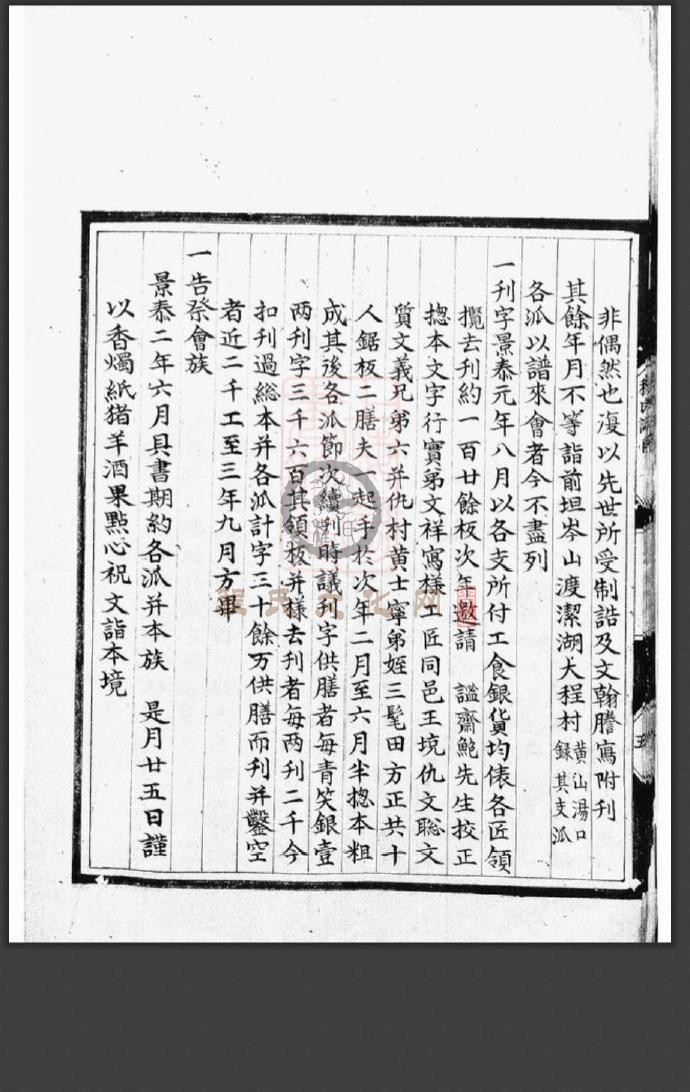 非偶然也復以先世所受制誥及文翰謄寫附刊
其餘年月不等詣前坦岑山渡潔湖大程村黃山湯口録其支派
各派以譜來會者今不盡列
一刊字景泰元年八月以各支所付工食銀貨均俵各匠領
攬去刊約一百廿餘板次年邀請　謐齋鮑先生挍正
捴本文字行實弟文祥寫様工匠同邑王境仇文聡文
質文義兄弟六并仇村黄士寧弟姪三髦田方正共十
人鋸板二膳夫一起手於次年二月至六月半捴本粗
成其後各派節次續刊時議刊字供膳者每青笑銀壹
两刊字三千六百其領板并様去刊者每两刊二千今
扣刊過総本并各派計字三十餘万供膳而刊并鑿空
者近二千工至三年九月方畢
一告祭會族
景泰二年六月具書期約各派并本族　是月廿五日謹
以香燭紙猪羊酒果點心祝文詣本境
程氏文化网